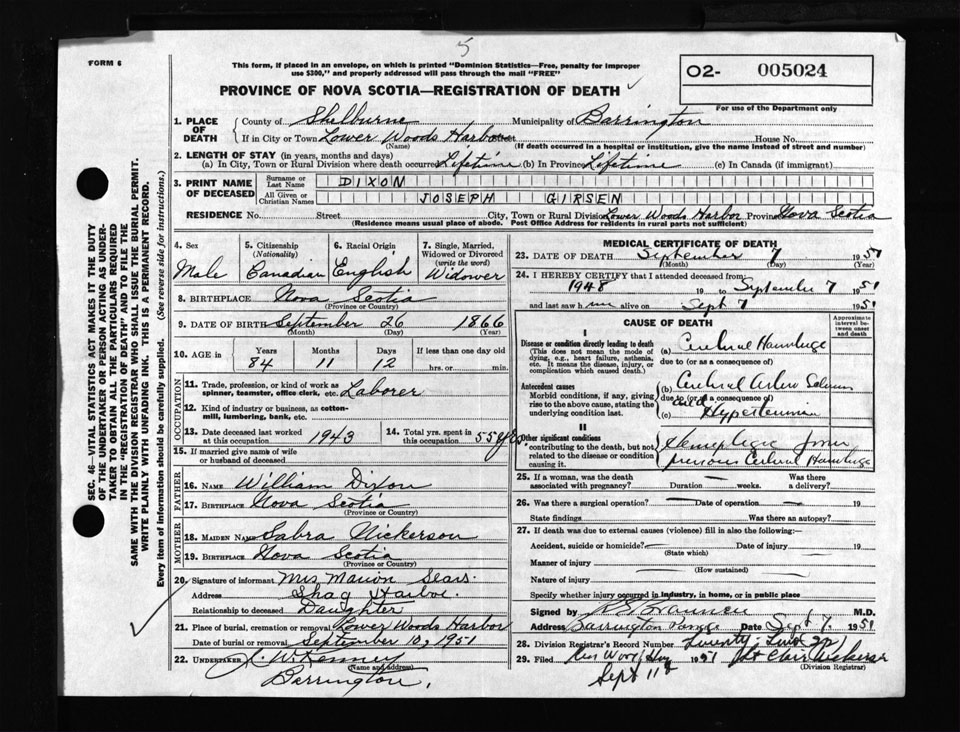 5
FORM 6
This form, if placed in an envelope, on which is printed "Dominion Statistics—Free, penalty for improper
use $300," and properly addressed will pass through the mail "FREE"
PROVINCE OF NOVA SCOTIA—REGISTRATION OF DEATH
O2- 005024
For use of the Department only
1. PLACE OF DEATH
County of Shelburne Municipality of Barrington
If in City or Town Lower Woods Harbor Street House No.
(Name) (If death occurred in a hospital or institution, give the name instead of street and number)
2. LENGTH OF STAY (in years, months and days)
(a) In City, Town or Rural Division where death occurred Lifetime (b) In Province Lifetime (c) In Canada (if immigrant)
3. PRINT NAME OF DECEASED
Surname or Last Name DIXON
All Given or Christian Names JOSEPH GIRSEN
RESIDENCE No. Street City, Town or Rural Division Lower Woods Harbor Province Nova Scotia
(Residence means usual place of abode. Post Office Address for residents in rural parts not sufficient)
4. Sex
Male
5. Citizenship
(Nationality)
Canadian
6. Racial Origin
English
7. Single, Married,
Widowed or Divorced
(write the word)
Widower
8. BIRTHPLACE Nova Scotia
(Province or Country)
9. DATE OF BIRTH September 26 1866
(Month) (Day) (Year)
10. AGE in
Years Months Days If less than one day old
84 11 12 hrs. or min.
OCCUPATION
11. Trade, profession, or kind of work as
spinner, teamster, office clerk, etc. Laborer
12. Kind of industry or business, as cotton-
mill, lumbering, bank, etc.
13. Date deceased last worked
at this occupation 1943
14. Total yrs. spent in
this occupation 55 yrs
15. If married give name of wife
or husband of deceased
FATHER
16. NAME William Dixon
17. BIRTHPLACE Nova Scotia
(Province or Country)
MOTHER
18. MAIDEN NAME Sabra Nickerson
19. BIRTHPLACE Nova Scotia
(Province or Country)
20. Signature of informant Mrs Marion Sears.
Address Shag Harbor.
Relationship to deceased Daughter
21. Place of burial, cremation or removal Lower Woods Harbor
Date of burial or removal September 10, 1951
22. UNDERTAKER J. W. Kenney
(Name and address)
Barrington.
MEDICAL CERTIFICATE OF DEATH
23. DATE OF DEATH September 7 1951
(Month) (Day) (Year)
24. I HEREBY CERTIFY that I attended deceased from:
1948 19 to September 7 1951
and last saw him alive on Sept 7 1951
CAUSE OF DEATH
Approximate interval between onset and death
I
Disease or condition directly leading to death
(This does not mean the mode of
dying, e.g., heart failure, asthenia,
etc. It means the disease, injury, or
complication which caused death.)
(a) Cerebral Hemorrhage
due to (or as a consequence of)
Antecedent causes
Morbid conditions, if any, giving
rise to the above cause, stating the
underlying condition last.
(b) Cerebral Arterio Sclerosis
due to (or as a consequence of)
and
(c) Hypertension
II
Other significant conditions
contributing to the death, but not
related to the disease or condition
causing it.
Hemiplegia from
previous Cerebral Hemorrhage
25. If a woman, was the death
associated with pregnancy? Duration weeks. Was there
a delivery?
26. Was there a surgical operation? Date of operation 19
State findings Was there an autopsy?
27. If death was due to external causes (violence) fill in also the following:—
Accident, suicide or homicide? Date of injury 19
(State which)
Manner of injury
(How sustained)
Nature of injury
Specify whether injury occurred in industry, in home, or in public place
Signed by M.D.
Address Barrington Passage Date Sept 7. 1951
28. Division Registrar's Record Number Twenty-Two 22
29. Filed 1951
(Division Registrar)
Sept 11
SEC. 46—VITAL STATISTICS ACT MAKES IT THE DUTY
OF THE UNDERTAKER OR PERSON ACTING AS UNDER-
TAKER TO OBTAIN ALL THE PARTICULARS REQUIRED
IN THE "REGISTRATION OF DEATH" AND TO FILE THE
SAME WITH THE DIVISION REGISTRAR WHO SHALL ISSUE THE BURIAL PERMIT.
WRITE PLAINLY WITH UNFADING INK. THIS IS A PERMANENT RECORD.
Every item of information should be carefully supplied. (See reverse side for instructions.)